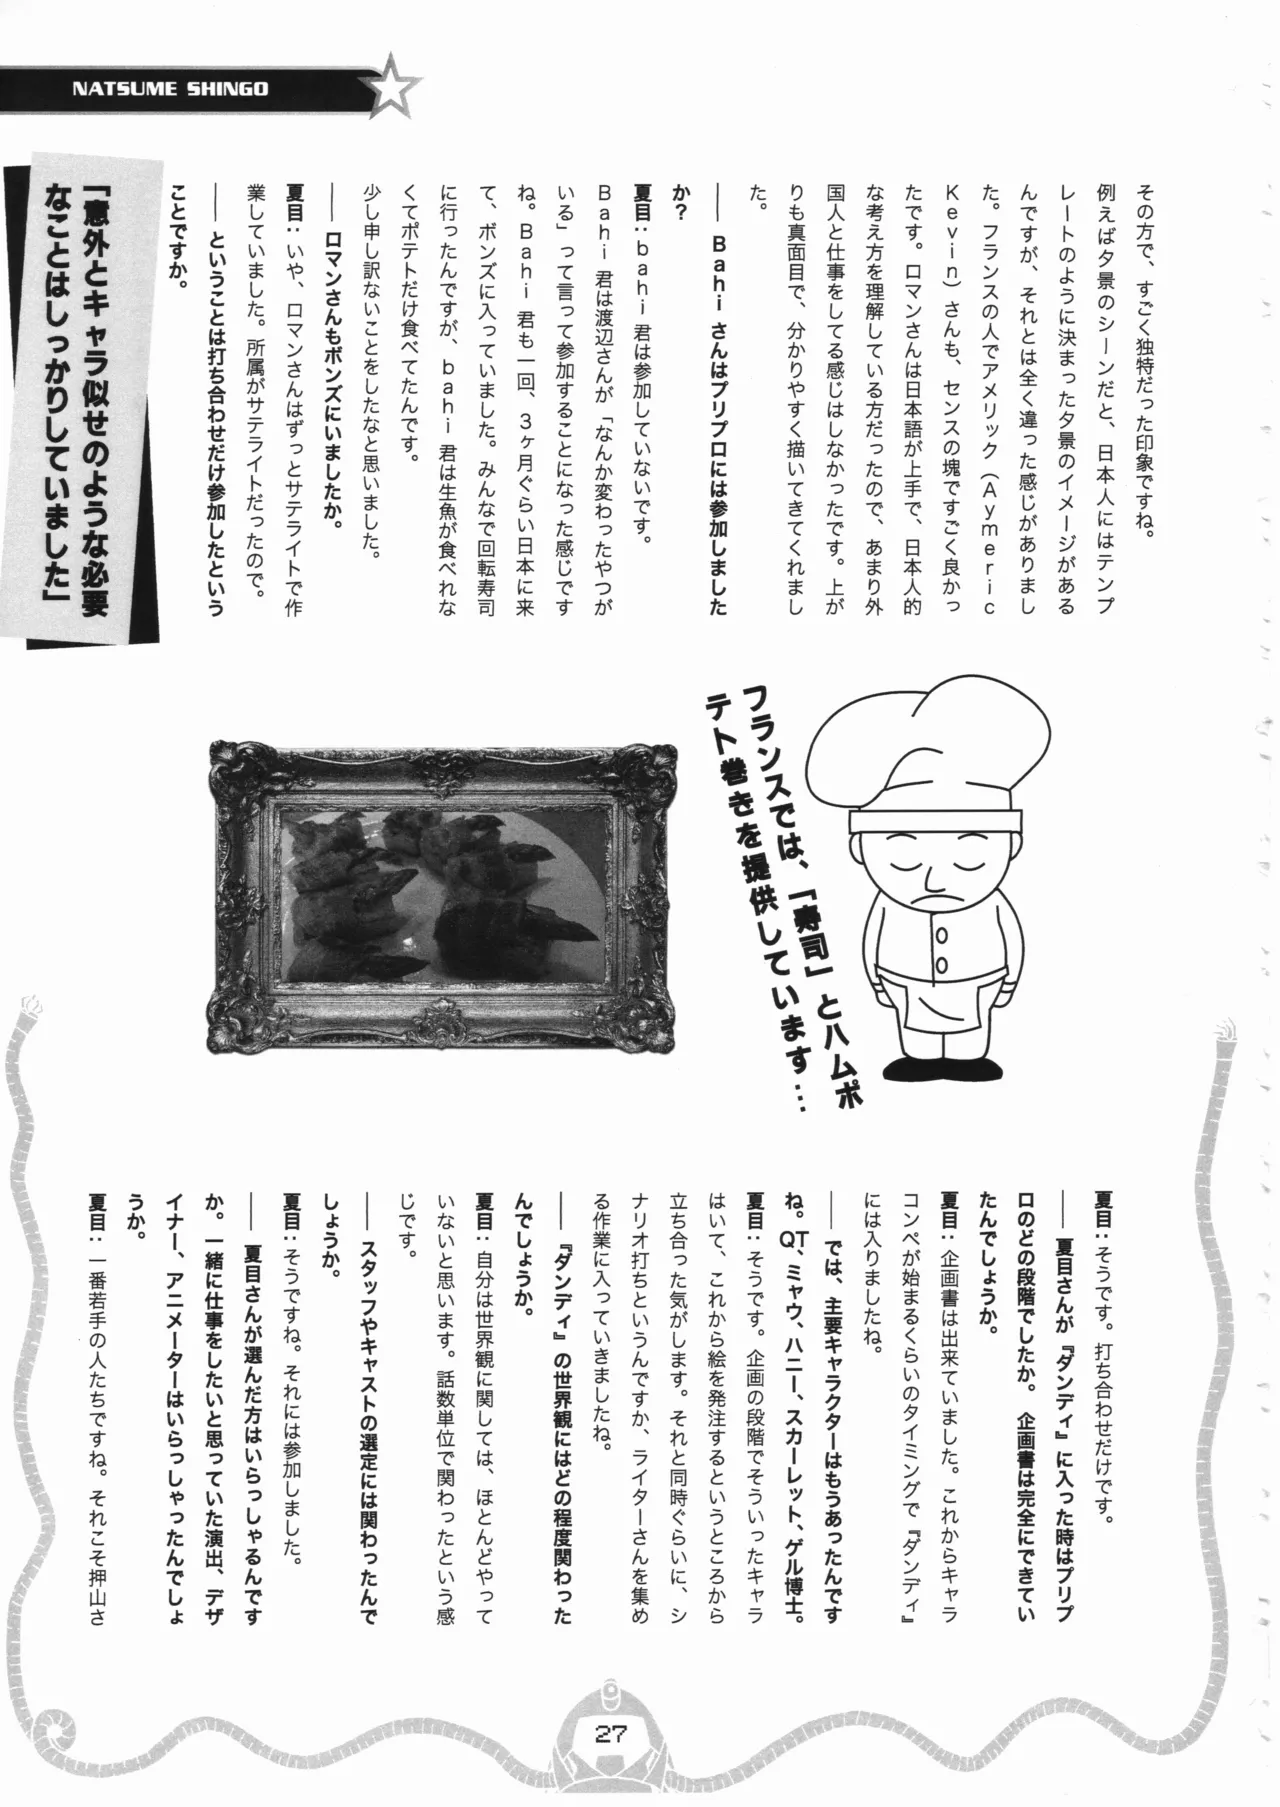 NATSUME SHINGO
その方で、すごく独特だった印象ですね。
例えば夕景のシーンだと、日本人にはテンプ
レートのように決まった夕景のイメージがある
んですが、それとは全く違った感じがありまし
た。フランスの人でアメリック（Aymeric
Kevin）さんも、センスの塊ですごく良かっ
たです。ロマンさんは日本語が上手で、日本人的
な考え方を理解している方だったので、あまり外
国人と仕事をしてる感じはしなかったです。上が
りも真面目で、分かりやすく描いてきてくれまし
た。
―― Bahiさんはプリプロには参加しました
か？
夏目：bahi君は参加していないです。
Bahi君は渡辺さんが「なんか変わったやつが
いる」って言って参加することになった感じです
ね。Bahi君も一回、3ヶ月ぐらい日本に来
て、ボンズに入っていました。みんなで回転寿司
に行ったんですが、bahi君は生魚が食べれな
くてポテトだけ食べてたんです。
少し申し訳ないことをしたなと思いました。
―― ロマンさんもボンズにいましたか。
夏目：いや、ロマンさんはずっとサテライトで作
業していました。所属がサテライトだったので。
―― ということは打ち合わせだけ参加したという
ことですか。
「意外とキャラ似せのような必要
なことはしっかりしていました」
フランスでは、「寿司」とハムポ
テト巻きを提供しています…
夏目：そうです。打ち合わせだけです。
―― 夏目さんが『ダンディ』に入った時はプリプ
ロのどの段階でしたか。企画書は完全にできてい
たんでしょうか。
夏目：企画書は出来ていました。これからキャラ
コンペが始まるくらいのタイミングで『ダンディ』
には入りましたね。
―― では、主要キャラクターはもうあったんです
ね。QT、ミャウ、ハニー、スカーレット、ゲル博士。
夏目：そうです。企画の段階でそういったキャラ
はいて、これから絵を発注するというところから
立ち合った気がします。それと同時ぐらいに、シ
ナリオ打ちというんですか、ライターさんを集め
る作業に入っていきましたね。
―― 『ダンディ』の世界観にはどの程度関わった
んでしょうか。
夏目：自分は世界観に関しては、ほとんどやって
いないと思います。話数単位で関わったという感
じです。
―― スタッフやキャストの選定には関わったんで
しょうか。
夏目：そうですね。それには参加しました。
―― 夏目さんが選んだ方はいらっしゃるんです
か。一緒に仕事をしたいと思っていた演出、デザ
イナー、アニメーターはいらっしゃったんでしょ
うか。
夏目：一番若手の人たちですね。それこそ押山さ
27